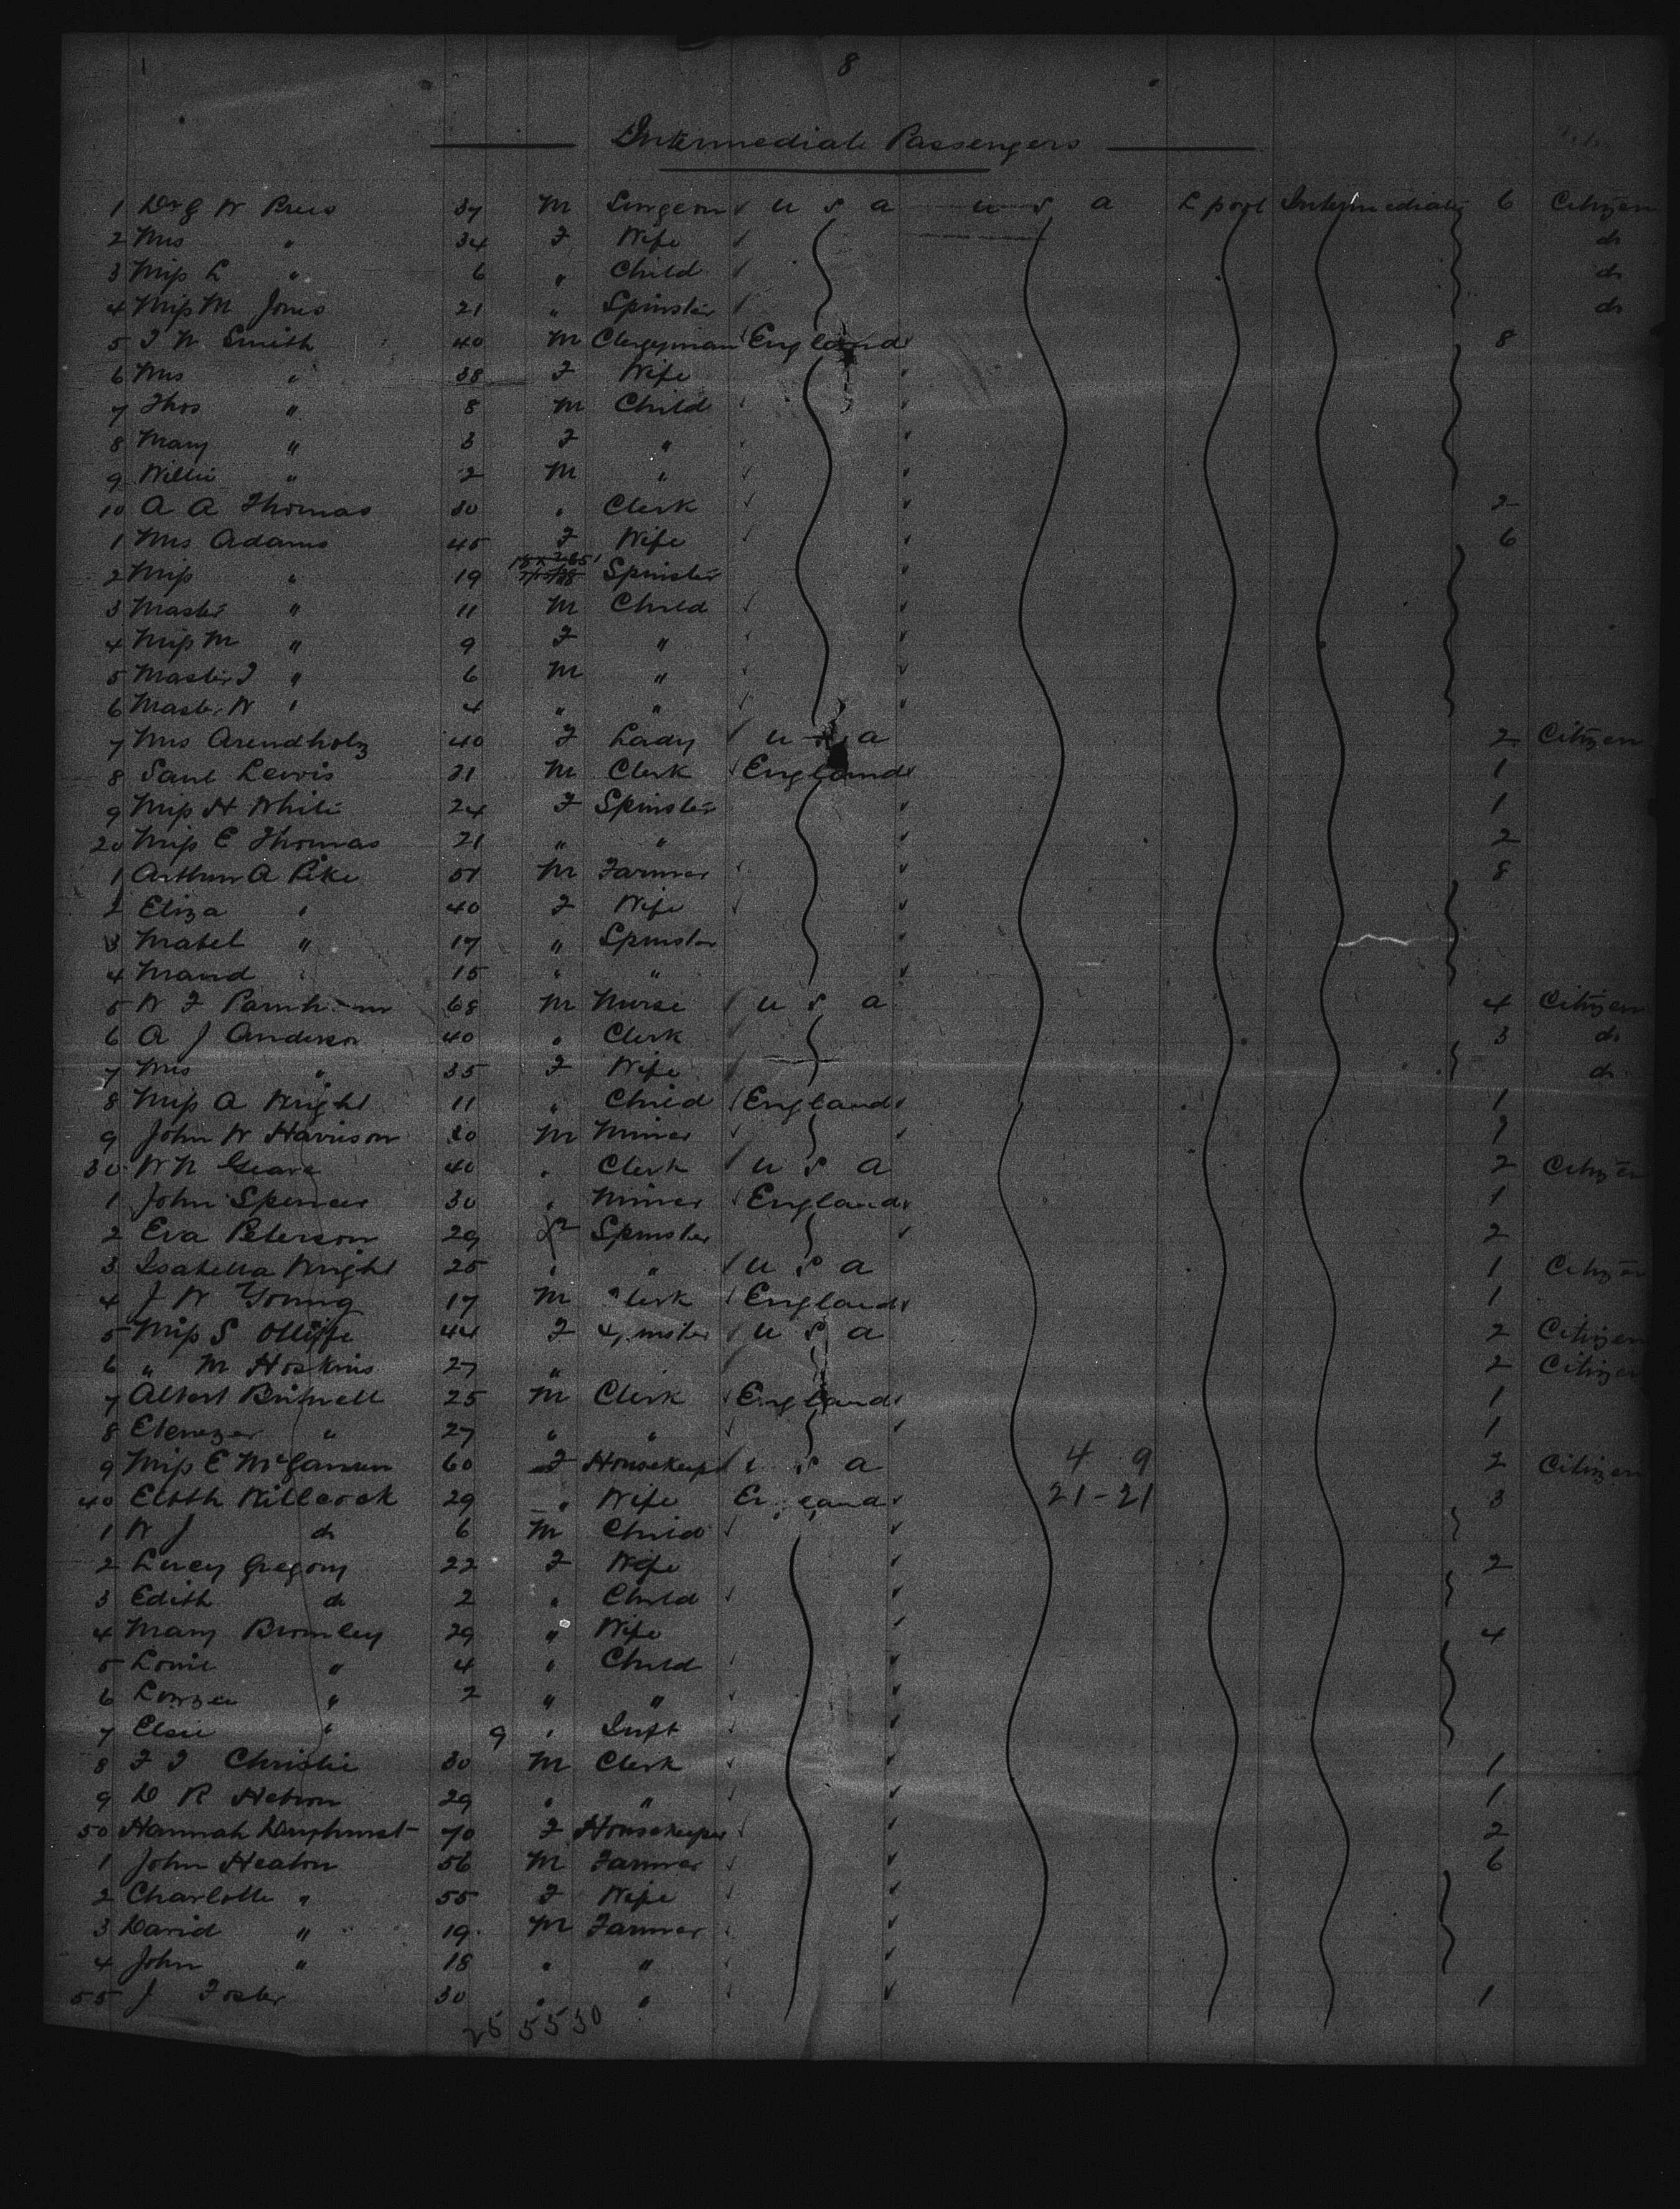 8
Intermediate Passengers
1 Dr G W 37 M Surgeon U S A U S A L pool Intermediate 6 Citizen
2 Mrs " 34 F Wife do
3 Miss L " 6 " Child do
4 Miss M Jones 21 " Spinster do
5 T W Smith 40 M Clergyman England 8
6 Mrs " 38 F Wife
7 Thos " 8 M Child
8 Mary " 3 F "
9 Willie " 2 M "
10 A A Thomas 30 " Clerk 2
1 Mrs Adams 45 F Wife 6
2 Miss " 19 Spinster
3 Master " 11 M Child
4 Miss M " 9 F "
5 Master J " 6 M "
6 Mastr W " 4 " "
7 Mrs Arendholz 40 F Lady U S A 2 Citizen
8 Saul Lewis 21 M Clerk England 1
9 Miss H White 24 F Spinster 1
20 Miss E Thomas 21 " " 2
1 Arthur A Pike 51 M Farmer 8
2 Eliza " 40 F Wife
3 Mabel " 17 " Spinster
4 Maud " 15 " "
5 W F 68 M Nurse U S A 4 Citizen
6 A J Anderson 40 " Clerk 3 do
7 Mrs " 35 F Wife do
8 Miss A Wright 11 " Child England 1
9 John W Harrison M Miner
30 W N 40 " Clerk U S A 2 Citizen
1 John Spencer 30 " Miner England 1
2 Eva Peterson 29 F Spinster 2
3 Isabella Wright 25 " " U S A 1 Citizen
4 J W Young 17 M Clerk England 1
5 Miss S Olliffe 44 F Spinster U S A 2 Citizen
6 " M Hoskins 27 " 2 Citizen
7 Albert 25 M Clerk England 1
8 Ebenezer " 27 " " 1
9 Miss E 60 F Housekeep U S A 4 9 2 Citizen
40 Elbth Willcock 29 " Wife England 21-21 3
1 W J do 6 M Child
2 Lucy Gregory 22 F Wife 2
3 Edith do 2 " Child
4 Mary Bromley 29 " Wife 4
5 Louie " 4 " Child
6 " 2 " "
7 Elsie " 9 " Inft
8 F J Christie 30 M Clerk 1
9 D R 29 " " 1
50 Hannah Dewhurst 70 F Housekeeper 2
1 John Heaton 56 M Farmer 6
2 Charlotte " 55 F Wife
3 David " 19 M Farmer
4 John " 18 " "
55 J Foster 30 " " 1
25 55 30